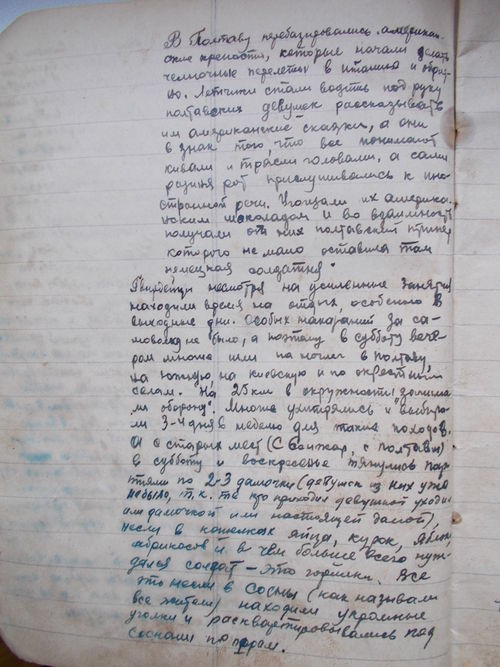 В Полтаву перебазировались американ-
ские крепости, которые начали делать
челночные перелеты в италию и обрат-
но. Летчики стали водить под руку
полтавских девушек рассказывать
им американские сказки, а они
в знак того, что все понимают
кивали и трясли головами, а сами
разиня рот прислушивались к ино-
странной речи. Угощали их америка
нским шоколадом и во взаимность
получали от них полтавский
которого не мало оставила там
немецкая солдатня"
несмотря на усиленные занятия
находили время на отдых, особенно в
выходные дни. Особых наказаний за са-
моволку не было, а поэтому в субботу вече-
ром многие шли на ночлег в Полтаву,
на южную, на киевскую и по окрестным
селам. На 25 км в окружности занима
ли оборону". Многие ухитрялись и выбира-
ли 3-4 дня в неделю для таких походов.
А с старых мест (с Санжар, с Полтавы)
в субботу и воскресенье тянулись пар-
тиями по 2-3 дамочки (девушек из них уже
небыло, т.к. те кто приходил девушкой уходи
ли дамочкой или настоящей дамой),
несли в кошелках яйца, курок, яблок
абрикосов и в чем больше всего нуж-
дался солдат - это горилки. Все
это несли в Сосны (как называли
все жители) находили укромные
уголки и расквартировывались под
соснами по парам.